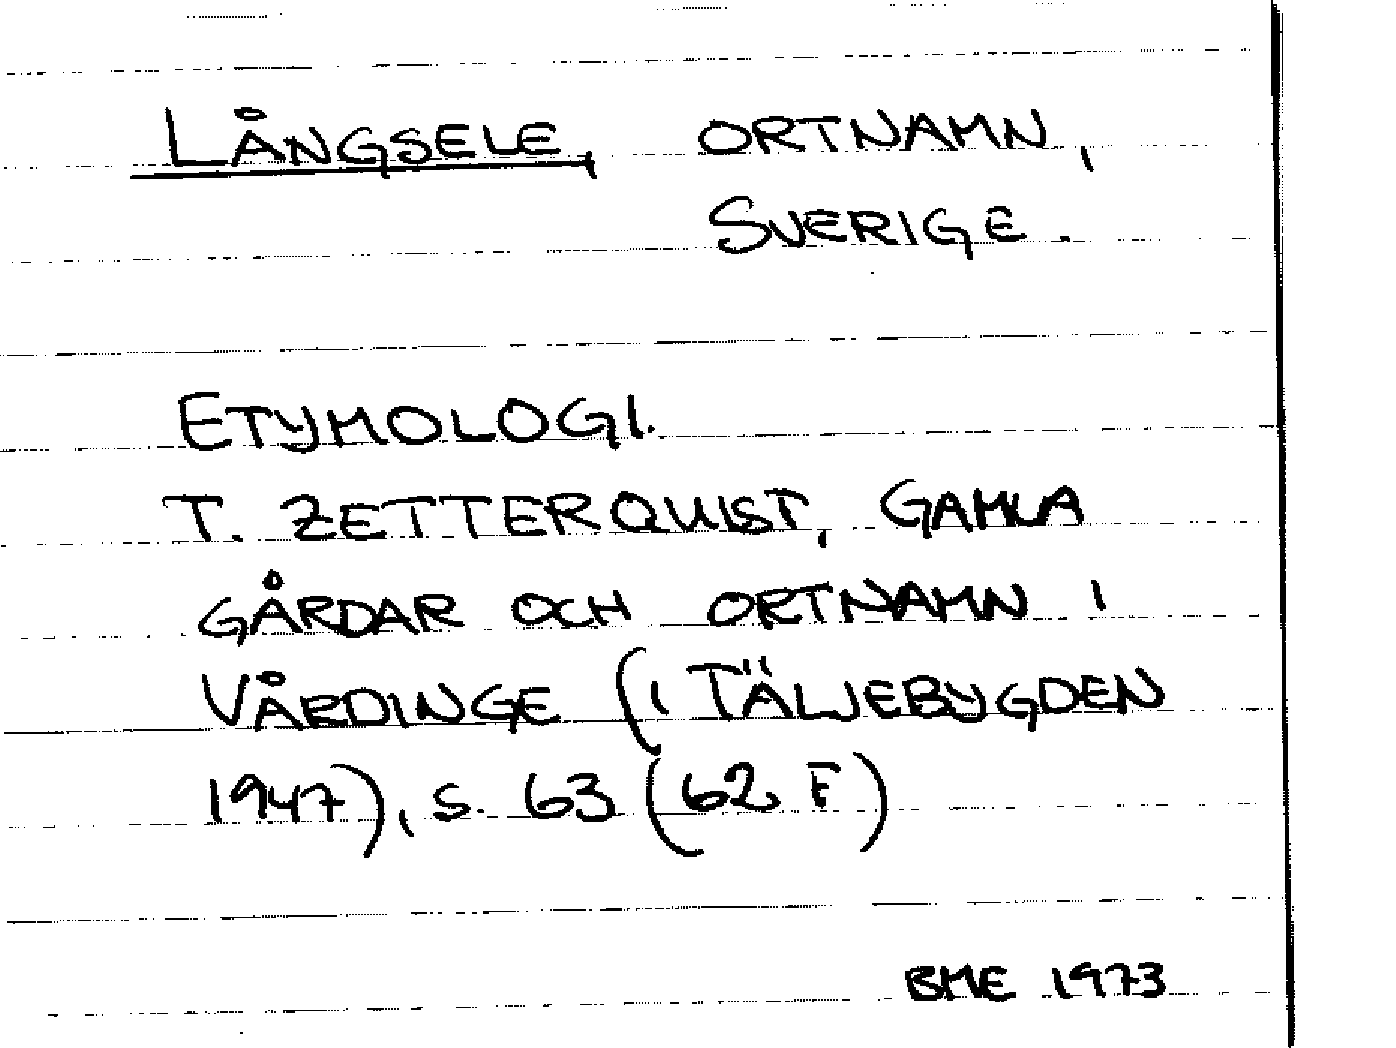 LÅNGSELE, ORTNAMN,
SVERIGE.
ETYMOLOGI.
T. ZETTERQUIST, GAMLA
GÅRDAR OCH ORTNAMN I
VÅRDINGE (I TÄLJEBYGDEN
1947), S. 63 (62 F)
BME 1973